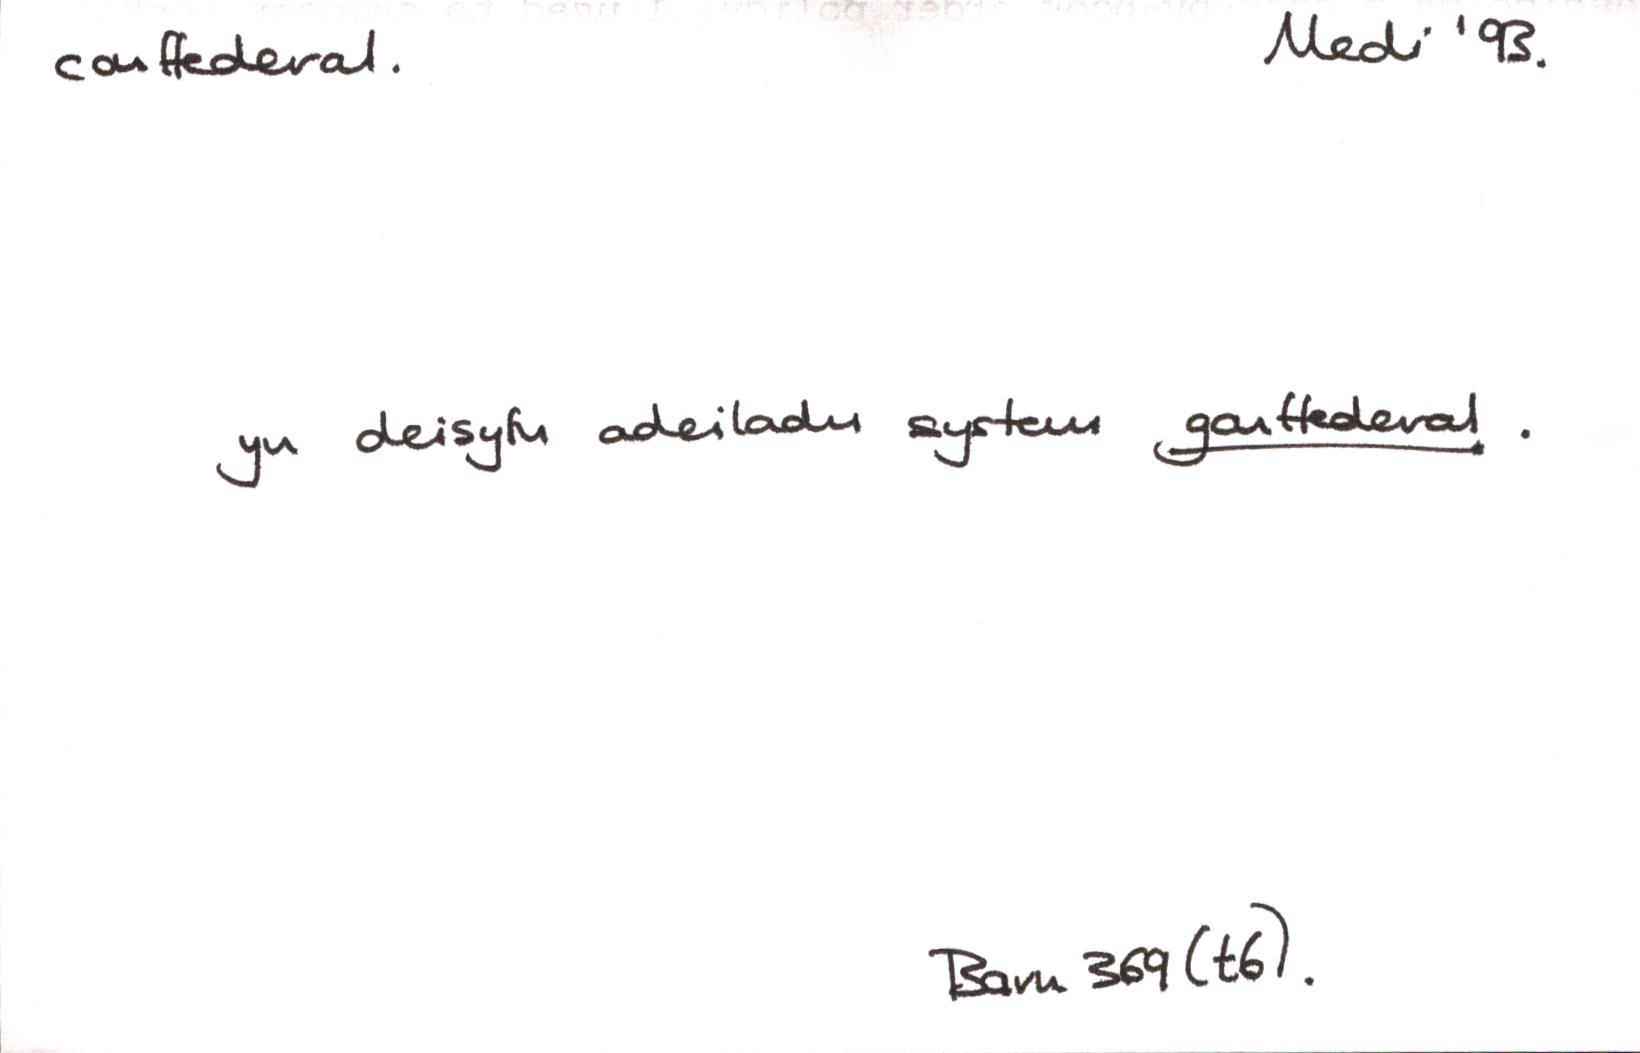 conffederal. Medi '93.
yn deisyfu adeiladu system gonffederal.
Barn 369 (t6).